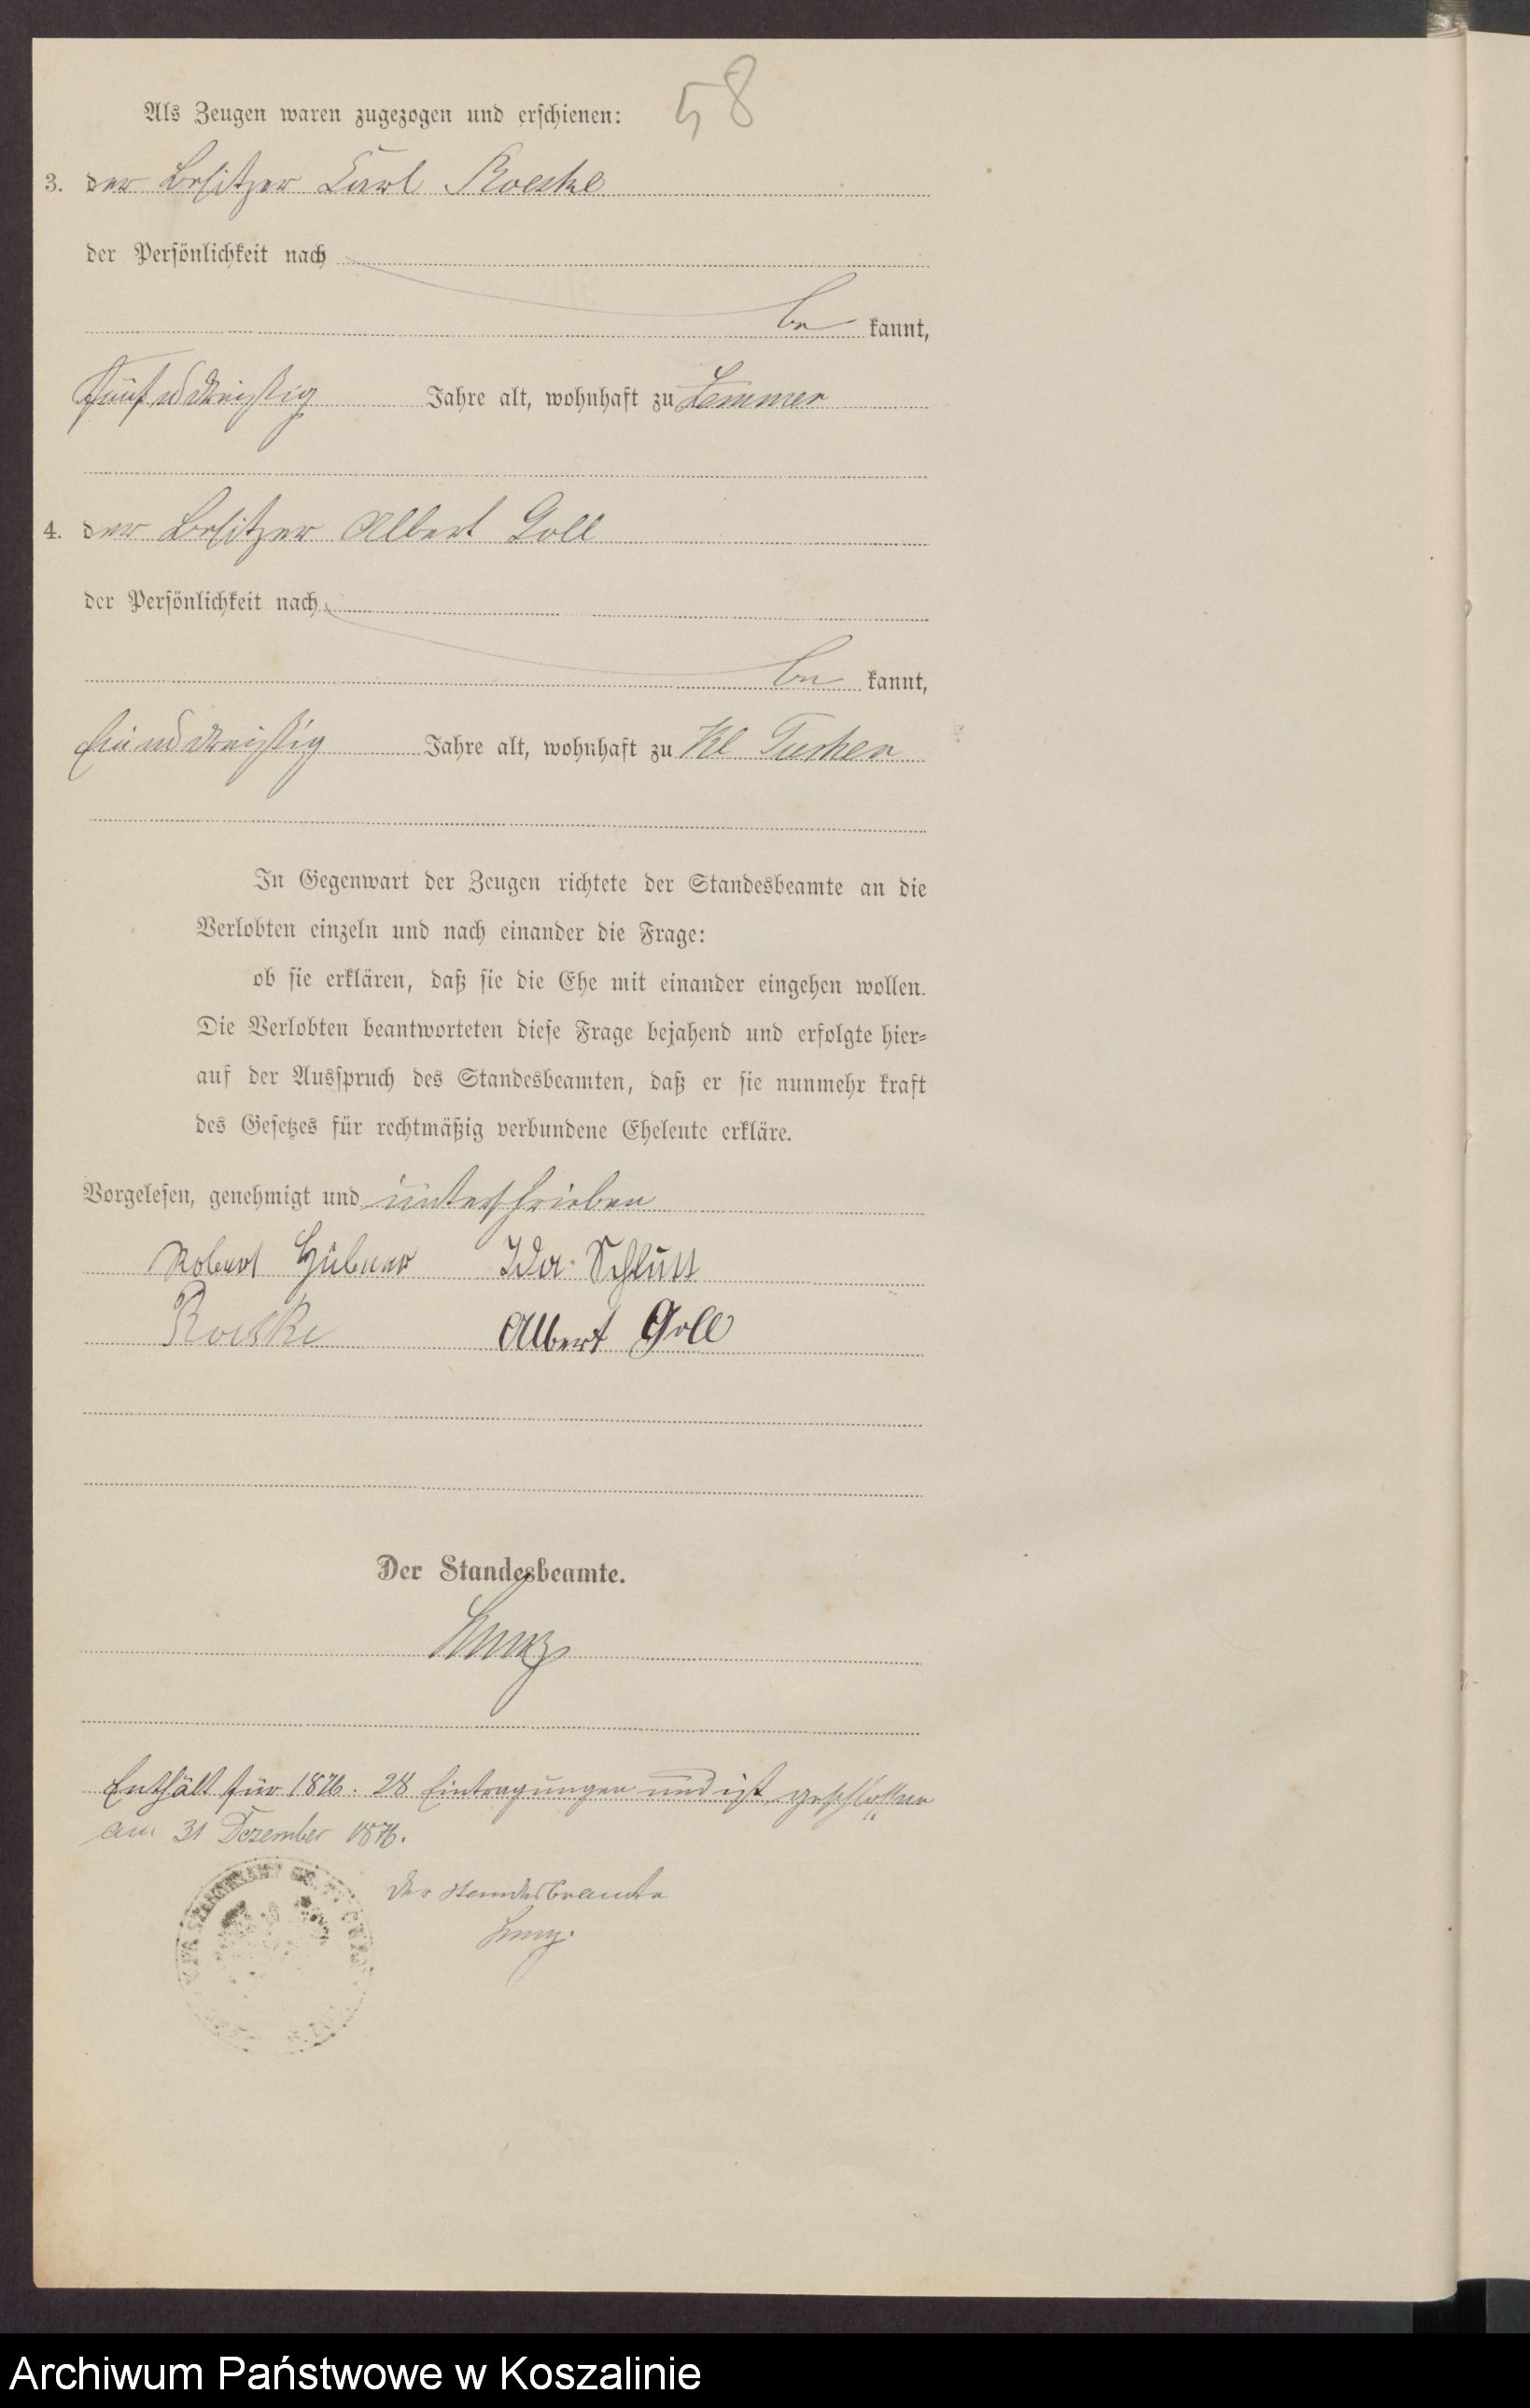 58
Als Zeugen waren zugezogen und erschienen:
3. der Besitzer Carl Roeske
der Persönlichkeit nach
be kannt,
fünf u dreißig Jahre alt, wohnhaft zu Lemmen
4. der Besitzer Albert Goll
der Persönlichkeit nach
be kannt,
ein u dreißig Jahre alt, wohnhaft zu Kl Tuchen
In Gegenwart der Zeugen richtete der Standesbeamte an die
Verlobten einzeln und nach einander die Frage:
ob sie erklären, daß sie die Ehe mit einander eingehen wollen.
Die Verlobten beantworteten diese Frage bejahend und erfolgte hier=
auf der Ausspruch des Standesbeamten, daß er sie nunmehr kraft
des Gesetzes für rechtmäßig verbundene Eheleute erkläre.
Vorgelesen, genehmigt und unterschrieben
Robert Hübner Ida Schlütt
Roeske Albert Goll
Der Standesbeamte.
Enthält für 1876. 28 Eintragungen und ist geschlossen
am 31 Dezember 1876.
Der Standesbeamte
Archiwum Państwowe w Koszalinie